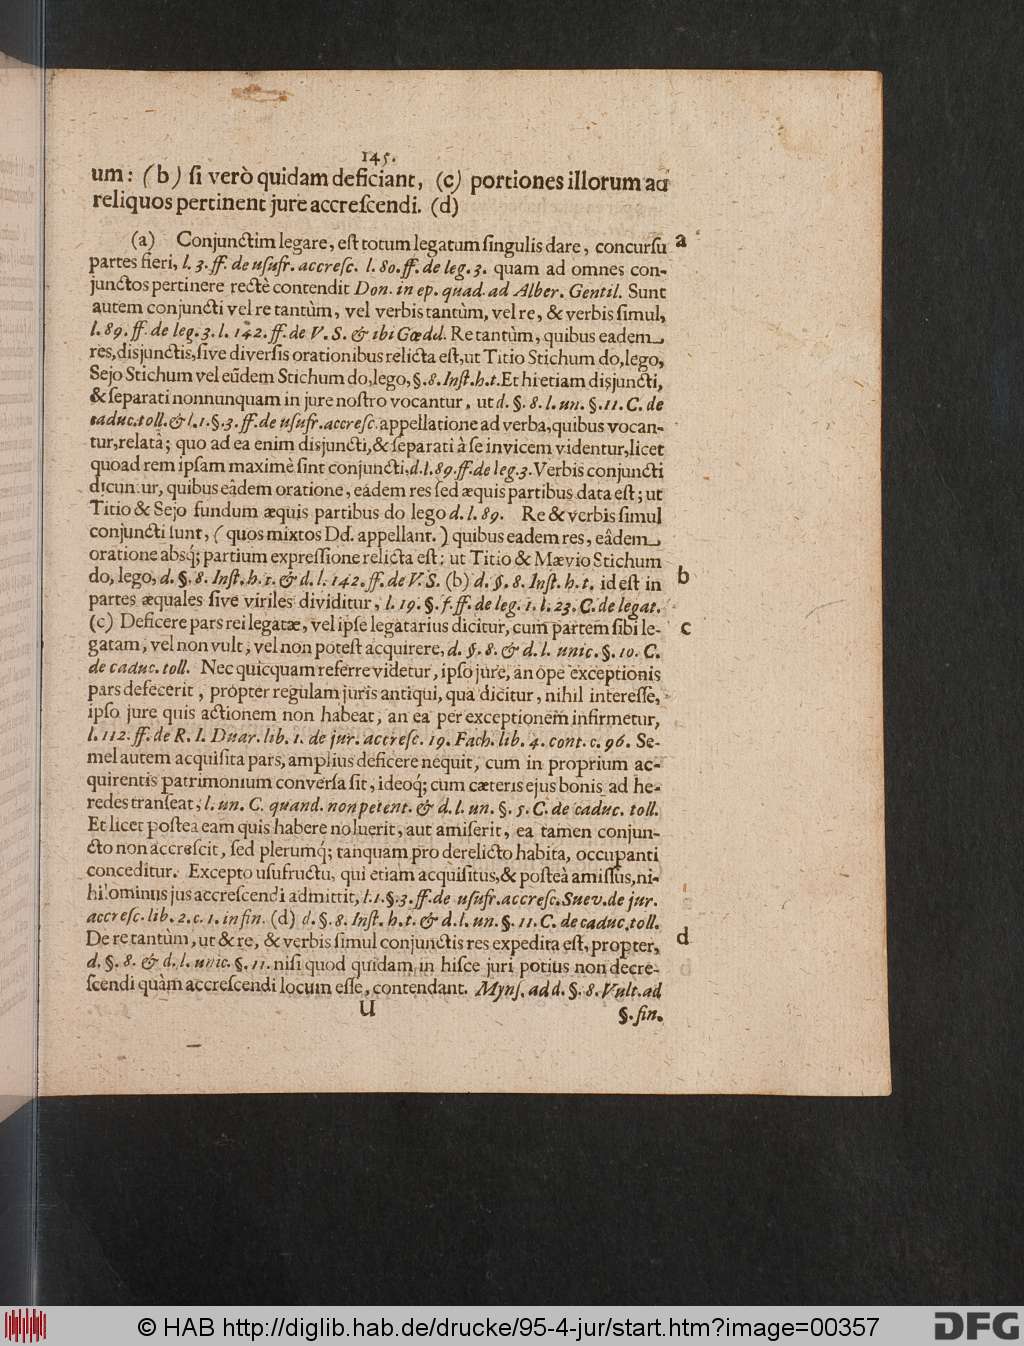 145.
um: (b) ſi verò quidam deficiant, (c) portiones illorum ad
reliquos pertinent jure accreſcendi. (d)
(a) Conjunctim legare, eſt totum legatum ſingulis dare, concurſu a
partes fieri, l. 3. ff. de uſufr. accreſc. l. 80. ff. de leg. 3. quam ad omnes con-
junctos pertinere rectè contendit Don. in ep. quad. ad Alber. Gentil. Sunt
autem conjuncti vel re tantùm, vel verbis tantùm, vel re, & verbis ſimul,
l. 89. ff. de leg. 3. l. 142. ff. de V. S. & ibi Gœdd. Re tantùm, quibus eadem
res, disjunctis, ſive diverſis orationibus relicta eſt, ut Titio Stichum do, lego,
Sejo Stichum vel eũdem Stichum do, lego, §. 8. Inſt. h. t. Et hi etiam disjuncti,
& ſeparati nonnunquam in jure noſtro vocantur, ut d. §. 8. l. un. §. 11. C. de
caduc. toll. & l. 1. §. 3. ff. de uſufr. accreſc. appellatione ad verba, quibus vocan-
tur, relatâ; quo ad ea enim disjuncti, & ſeparati à ſe invicem videntur, licet
quoad rem ipſam maximè ſint conjuncti, d. l. 89. ff. de leg. 3. Verbis conjuncti
dicuntur, quibus eâdem oratione, eadem res ſed æquis partibus data eſt; ut
Titio & Sejo fundum æquis partibus do lego d. l. 89. Re & verbis ſimul
conjuncti ſunt, (quos mixtos Dd. appellant.) quibus eadem res, eâdem
oratione absq; partium expreſſione relicta eſt: ut Titio & Mævio Stichum
do, lego, d. §. 8. Inſt. h. t. & d. l. 142. ff. de V. S. (b) d. §. 8. Inſt. h. t. id eſt in b
partes æquales ſive viriles dividitur, l. 19. §. f. ff. de leg. 1. l. 23. C. de legat.
(c) Deficere pars rei legatæ, vel ipſe legatarius dicitur, cum partem ſibi le- c
gatam, vel non vult, vel non poteſt acquirere, d. §. 8. & d. l. unic. §. 10. C.
de caduc. toll. Nec quicquam referre videtur, ipſo jure, an ope exceptionis
pars defecerit, propter regulam juris antiqui, qua dicitur, nihil intereſſe,
ipſo jure quis actionem non habeat, an ea per exceptionem infirmetur,
l. 112. ff. de R. I. Duar. lib. 1. de jur. accreſc. 19. Fach. lib. 4. cont. c. 96. Se-
mel autem acquiſita pars, amplius deficere nequit, cum in proprium ac-
quirentis patrimonium converſa ſit, ideoq; cum cæteris ejus bonis ad he-
redes tranſeat, l. un. C. quand. non petent. & d. l. un. §. 5. C. de caduc. toll.
Et licet poſtea eam quis habere noluerit, aut amiſerit, ea tamen conjun-
cto non accreſcit, ſed plerumq; tanquam pro derelicto habita, occupanti
conceditur. Excepto uſufructu, qui etiam acquiſitus, & poſteà amiſſus, ni-
hilominus jus accreſcendi admittit, l. 1. §. 3. ff. de uſufr. accreſc. Suev. de jur.
accreſc. lib. 2. c. 1. in fin. (d) d. §. 8. Inſt. h. t. & d. l. un. §. 11. C. de caduc. toll.
De re tantùm, ut & re, & verbis ſimul conjunctis res expedita eſt, propter, d
d. §. 8. & d. l. unic. §. 11. niſi quod quidam in hiſce juri potius non decre-
ſcendi quàm accreſcendi locum eſſe, contendant. Mynſ. ad d. §. 8. Vult. ad
U §. fin.
© HAB http://diglib.hab.de/drucke/95-4-jur/start.htm?image=00357
DFG